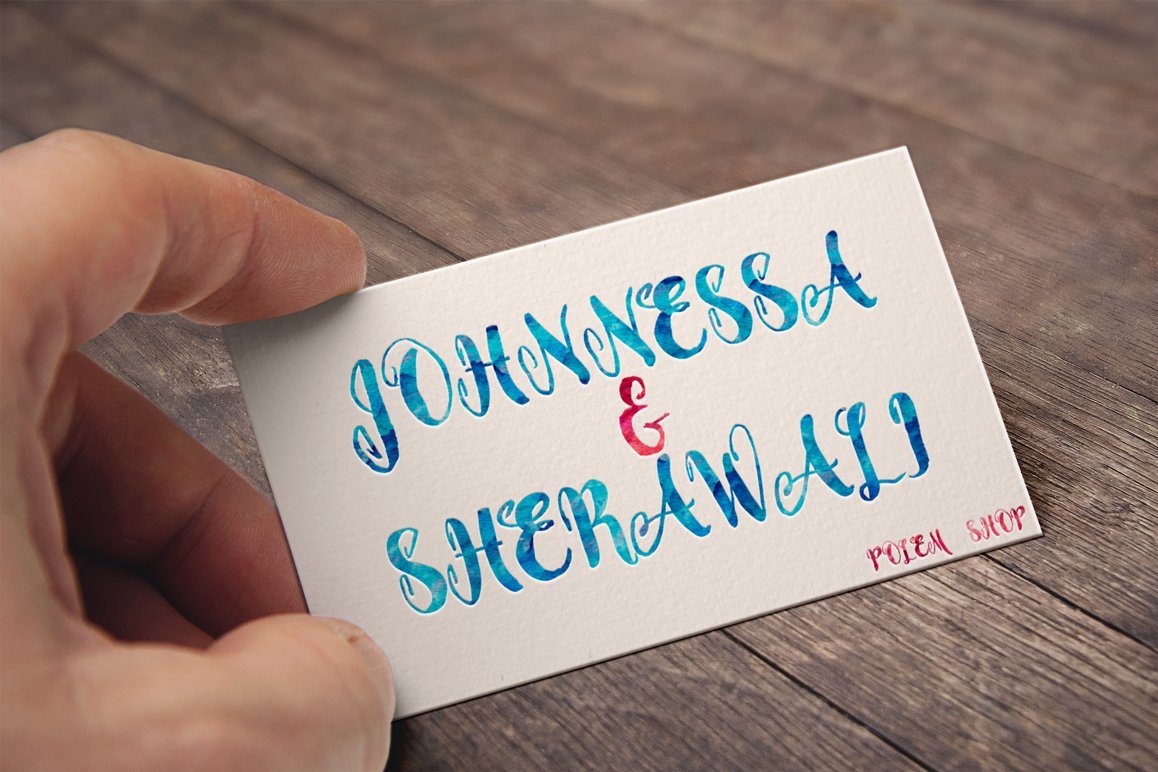 JOHNNESSA
&
SHERAWALI
POLEM SHOP